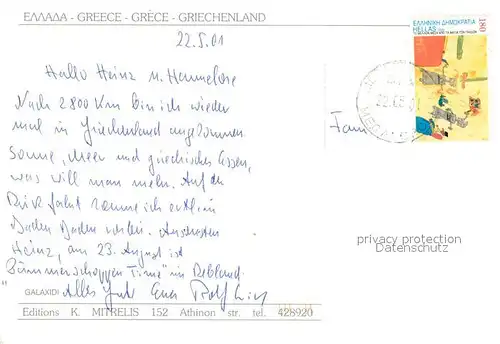 ΕΛΛΑΔΑ - GREECE - GRÈCE - GRIECHENLAND
22.5.01
Hallo Heinz u. Hannelore
Nach 2800 Km bin ich wieder
mal in Griechenland angekommen.
Sonne, Meer und griechisches Essen,
was will man mehr. Auf der
Rückfahrt komme ich evtl. in
Baden Baden vorbei. Ansonsten
Heinz, am 23. August ist
"Dämmerschoppen Time" in Rebland.
Alles Gute Euer Rolf
GALAXIDI
Editions K. MITRELIS 152 Athinon str. tel. 428920
ΕΛΛΗΝΙΚΗ ΔΗΜΟΚΡΑΤΙΑ
HELLAS
180
Fam
privacy protection
Datenschutz